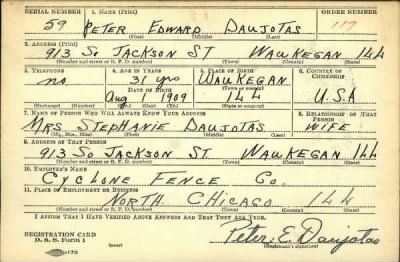 SERIAL NUMBER 1. NAME (Print) ORDER NUMBER
59 PETER EDWARD DAUJOTAS 117
(First) (Middle) (Last)
2. ADDRESS (Print)
913 So JACKSON ST WAUKEGAN ILL
(Number and street or R. F. D. number) (Town) (County) (State)
3. TELEPHONE 4. AGE IN YEARS 5. PLACE OF BIRTH 6. COUNTRY OF CITIZENSHIP
no 31 yrs WAUKEGAN
DATE OF BIRTH (Town or county)
Aug 1909 ILL U.S.A
(Exchange) (Number) (Mo.) (Day) (Yr.) (State or country)
7. NAME OF PERSON WHO WILL ALWAYS KNOW YOUR ADDRESS 8. RELATIONSHIP OF THAT PERSON
MRS STEPHANIE DAUJOTAS WIFE
(Mr., Mrs., Miss) (First) (Middle) (Last)
9. ADDRESS OF THAT PERSON
913 So JACKSON ST. WAUKEGAN ILL
(Number and street or R. F. D. number) (Town) (County) (State)
10. EMPLOYER'S NAME
CYCLONE FENCE Co.
11. PLACE OF EMPLOYMENT OR BUSINESS
NORTH CHICAGO ILL
(Number and street or R. F. D. number) (Town) (County) (State)
I AFFIRM THAT I HAVE VERIFIED ABOVE ANSWERS AND THAT THEY ARE TRUE.
REGISTRATION CARD
D. S. S. Form 1 Peter E. Daujotas
(Registrant's signature)